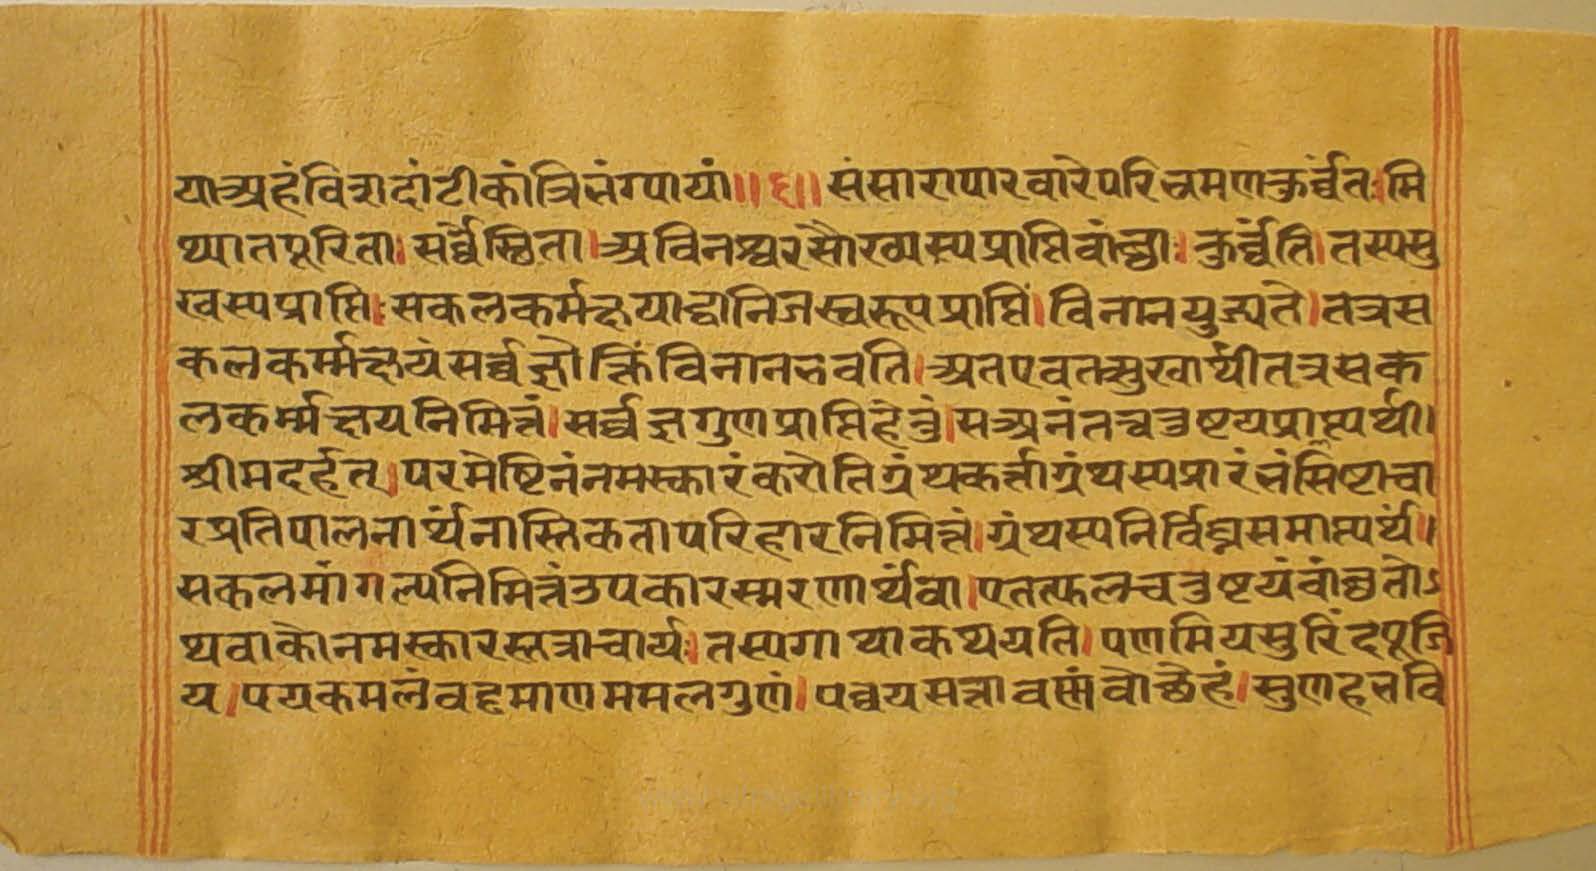 याअहंविशदांटीकांत्रिभंग्पायां॥६॥संसारापारवारेपरिभ्रमणकुर्व्वतःमि
थ्यातपूरिता।सर्व्वेस्थिता।अविनश्वरसौख्यस्यप्राप्तिवांछाःकुर्व्वंति।तस्यसु
खस्यप्राप्तिःसकलकर्मक्षयाद्वोनिजस्वरूपप्राप्तिं।विनानयुज्यते।तत्रस
कलकर्म्मक्षयंसर्व्वज्ञोक्तिंविनानभवति।अतएवतत्सुखार्थीतत्रसक
लकर्म्मक्षयनिमित्तं।सर्व्वज्ञगुणप्राप्तिहेतुं।सअनंतचतुष्टयप्राप्त्यर्थी।
श्रीमदर्हत्।परमेष्टिनंनमस्कारंकरोतिग्रंथकर्त्ताग्रंथस्यप्रारंभंसिष्टाचा
रप्रतिपालनार्थंनास्तिकतापरिहारनिमित्तं।ग्रंथस्यनिर्विघ्नसमाप्त्यर्थं॥
सकलमांगल्यनिमित्तंउपकारस्मरणार्थंवा।एतत्फलचतुष्टयंवांछतोऽ
थवाकौनमस्कारस्तत्राचार्यःतस्यगाथाकथयति।पणमियसुरिंदपूजि
य।पयकमलंवढ्ढमाणममलगुणं।पच्चयसत्तावण्णंवोछेहं।सुणहभवि